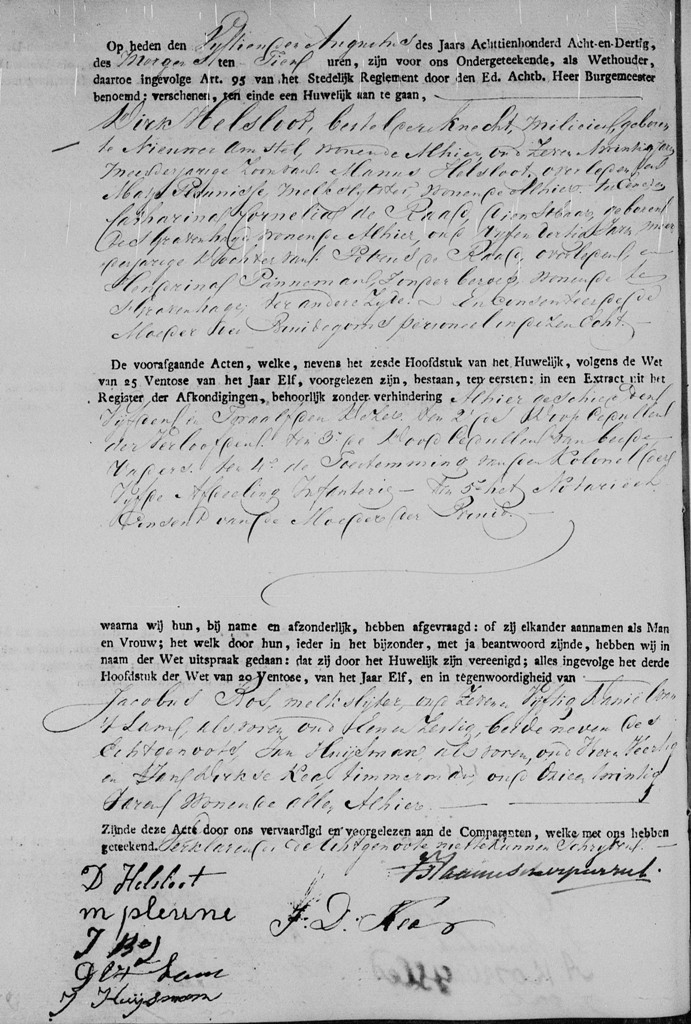 Op heden den Vyftienden Augustus des Jaars Achttienhonderd Acht-en-Dertig,
des Morgens ten Tien uren, zijn voor ons Ondergeteekende, als Wethouder,
daartoe ingevolge Art. 95 van het Stedelijk Reglement door den Ed. Achtb. Heer Burgemeester
benoemd; verschenen, ten einde een Huwelijk aan te gaan,
Dirk Helsloot, bestelders knecht, Milicien, geboren
te Nieuwer Amstel, wonende Alhier, oud Zeven Twintig Jaren
meerderjarige Zoon van Manus Helsloot, overleden, en
Melkslytster wonende Alhier, ter eenre
Catharina Cornelia de Raad, Dienstbaar, geboren
te 's Gravenhage wonende Alhier, oud Vyf en Dertig Jaren, meer
derjarige Dochter van Petrus de Raad, overleden, en
Hendrina Panneman, Zonder beroep, wonende te
's Gravenhage, ter andere Zyde. En Consenteerde de
Moeder des Bruidegoms personeel in dezen Echt.
De voorafgaande Acten, welke, nevens het zesde Hoofdstuk van het Huwelijk, volgens de Wet
van 25 Ventose van het Jaar Elf, voorgelezen zijn, bestaan, ten eersten: in een Extract uit het
Register der Afkondigingen, behoorlijk zonder verhindering Alhier geschied den
Vyfden en Twaalfden dezer. ten 2e de Doop Cedullen
der Verloofden. ten 3e de Dood Cedullen van beide
Vaders. ten 4e de Toestemming van den Kolonel der
Vyfde Afdeeling Infanterie — Ten 5e het Notarieele
Consent van de Moeder der Bruid.
waarna wij hun, bij name en afzonderlijk, hebben afgevraagd: of zij elkander aannamen als Man
en Vrouw; het welk door hun, ieder in het bijzonder, met ja beantwoord zijnde, hebben wij in
naam der Wet uitspraak gedaan: dat zij door het Huwelijk zijn vereenigd; alles ingevolge het derde
Hoofdstuk der Wet van 20 Ventose, van het Jaar Elf, en in tegenwoordigheid van
Jacobus Bos, melkslyter, oud Zeven Vyftig, Daniel van
't Lam, als voren, oud Een en Zestig, beide neven des
Echtgenoots, Jan Huijsman, als voren, oud Veertig
en Jan Dirkse Keas timmerman, oud Drie en twintig
Jaren Wonende allen Alhier.
Zijnde deze Acte door ons vervaardigd en voorgelezen aan de Comparanten, welke met ons hebben
geteekend. Verklarende de Echtgenoote niet te kunnen Schryven.
D Helsloot
m pleune
J Bos
J. D. Keas
J Huijsman